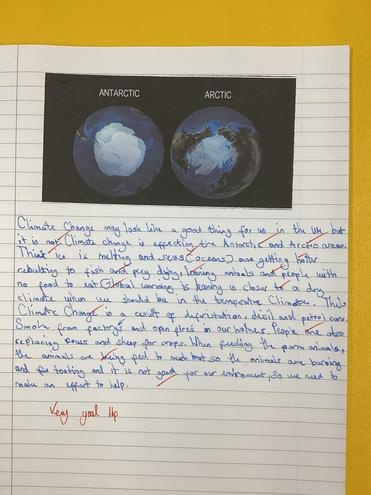 ANTARCTIC ARCTIC
Climate Change may look like a good thing for us in the UK but
it is not. Climate change is effecting the Antarctic and Arctic areas.
Thick Ice is melting and seas (oceans) are getting hotter
rebulting to fish and prey dying, leaving animals and people with
no food to eat. Global warming is leaving us closer to a dry
climate when we should be in the temperate Climate. This
Climate Change is a result of deforistation, desil and petrol cars.
Smoke from factorys and open fires in our homes. People are also
replacing cows and sheep for crops. When feeding the farm animals,
the animals are being fed to much but so the animals are burning
and for tooting and it is not good for our enviroment, So we need to
make an effort to help.
Very good